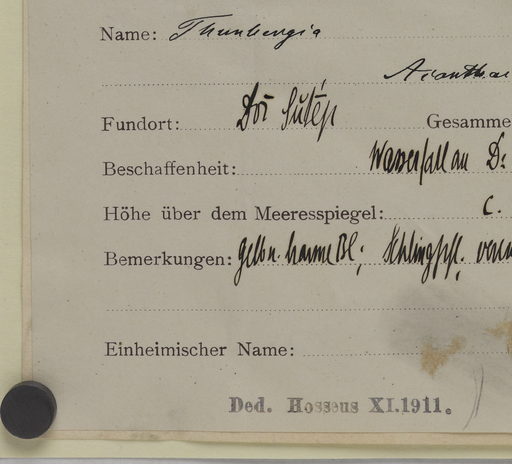 Name: Thunbergia
Acanthac
Fundort: Doi Sutép Gesamme
Beschaffenheit: Wasserfall am D:
Höhe über dem Meeresspiegel: c.
Bemerkungen: gelbe Bl; Schlingpfl.
Einheimischer Name:
Ded. Hosseus XI.1911.